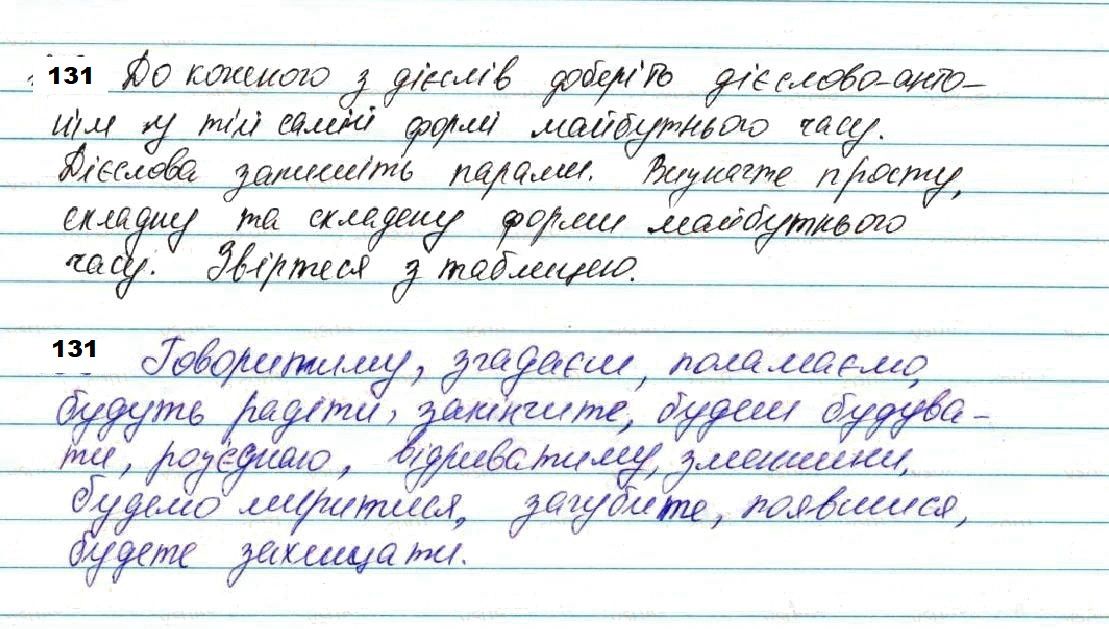 131 До кожного з дієслів доберіть дієслово-анто-
нім у тій самій формі майбутнього часу.
Дієслова запишіть парами. Визначте просту,
складну та складену форми майбутнього
часу. Звіртеся з таблицею.
131 Говоритиму, згадаєш, поламаємо,
будуть радіти, закінчите, будеш будува-
ти, роз'єднаю, відкриватиму, зменшиш,
будемо миритися, загубите, появишся,
будете захищати.